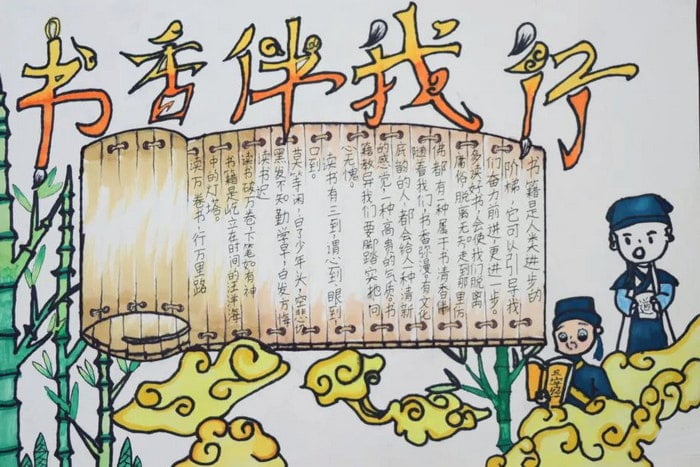 书香伴我行
书籍是人类进步的
阶梯,它可以引导我
们奋力前进,更进一步。
多读好书,会使我们脱离
庸俗,脱离无知,走到那里仿
佛都有一种属于书清香中
随着我们,书香弥漫,有文化
底韵的人,都会给人一种清新
的感觉,一种高贵的气质,书
籍教导我们要脚踏实地,问
心无愧。
读书有三到,谓心到,眼到,
口到。
莫等闲,白了少年头,空悲切
黑发不知勤学早,白发方悔
读书迟
读书破万卷,下笔如有神
书籍是屹立在时间的汪洋海
中的灯塔。
读万卷书,行万里路
三字经